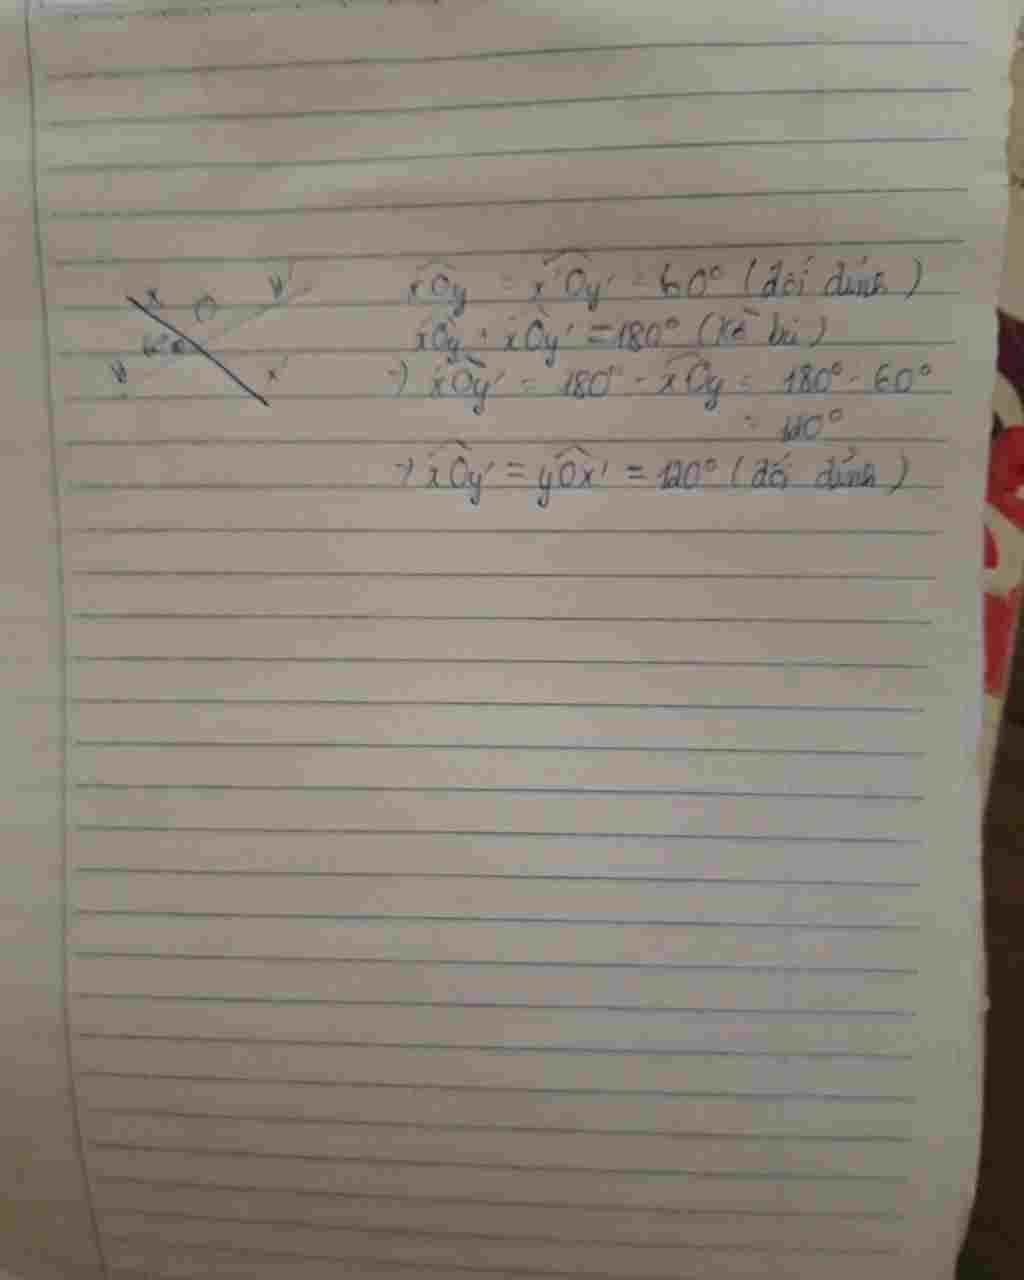 x O y'
60°
y x'
xOy = x'Oy' = 60° (đối đỉnh)
xOy + xOy' = 180° (kề bù)
=> xOy' = 180° - xOy = 180° - 60°
= 120°
=> xOy' = yOx' = 120° (đối đỉnh)